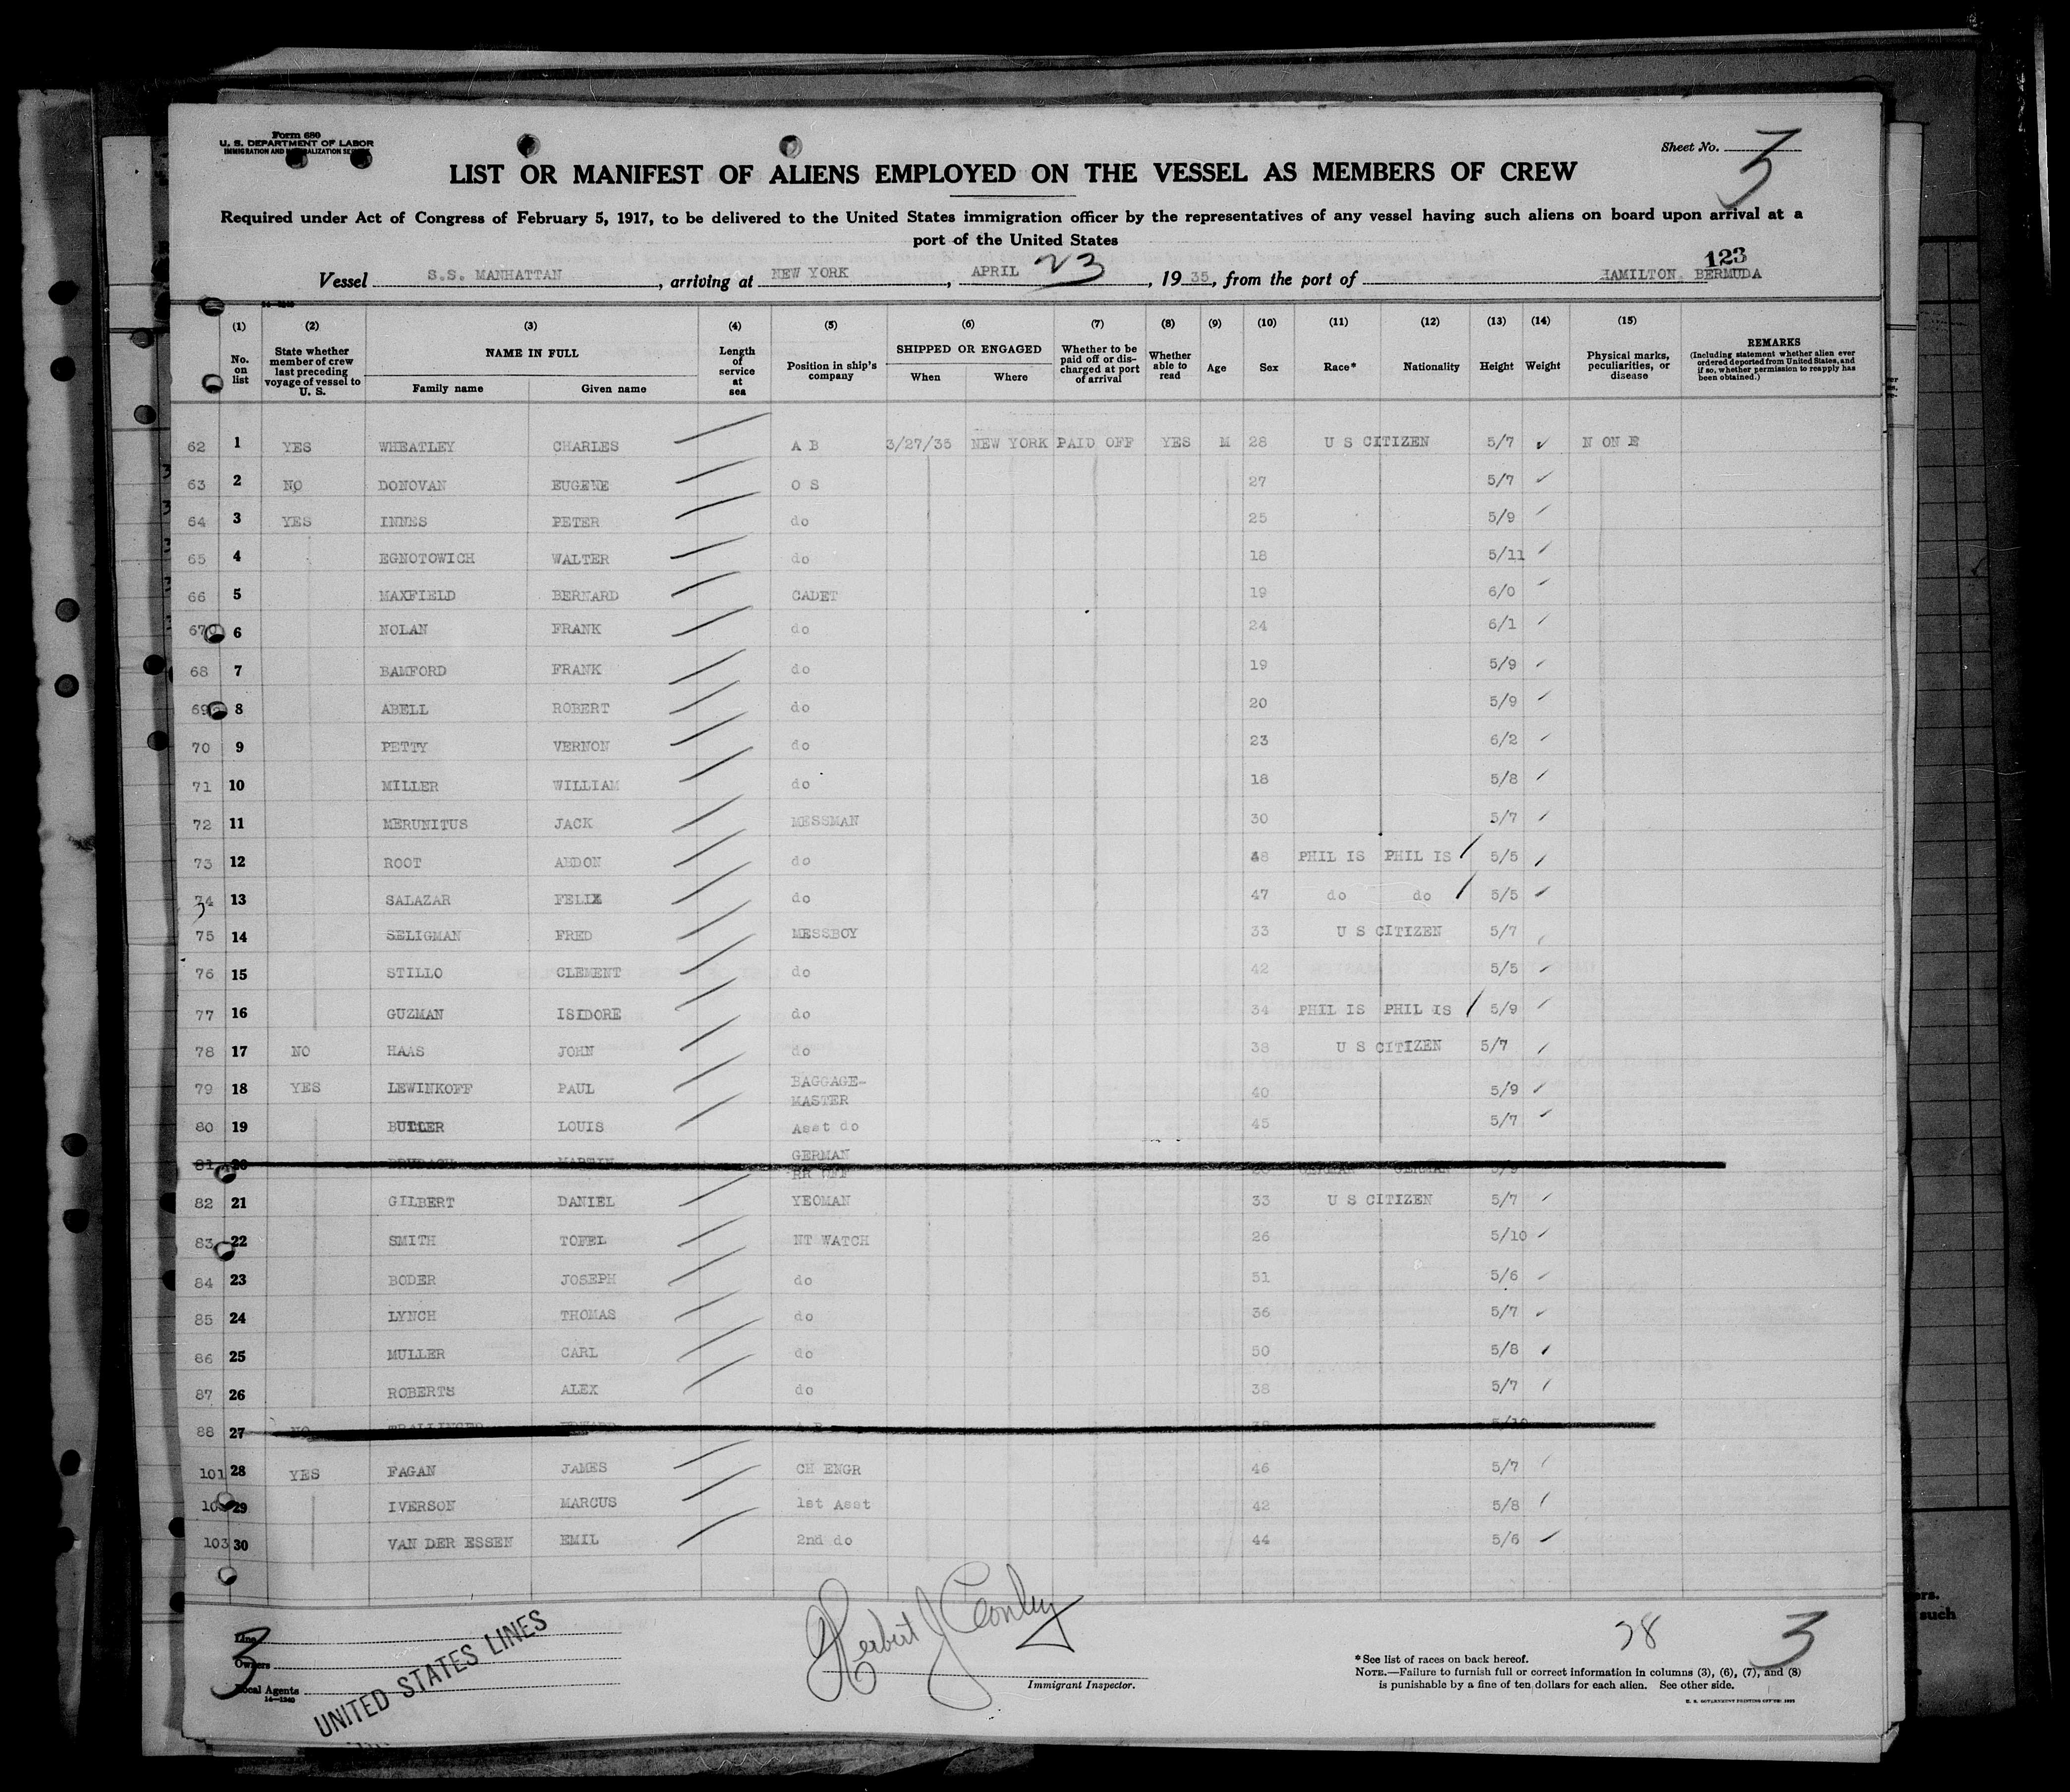 Form 680
U. S. DEPARTMENT OF LABOR
IMMIGRATION AND NATURALIZATION SERVICE
Sheet No. 3
LIST OR MANIFEST OF ALIENS EMPLOYED ON THE VESSEL AS MEMBERS OF CREW
Required under Act of Congress of February 5, 1917, to be delivered to the United States immigration officer by the representatives of any vessel having such aliens on board upon arrival at a
port of the United States
123
Vessel S.S. MANHATTAN, arriving at NEW YORK, APRIL 23, 1935, from the port of HAMILTON BERMUDA
(1) (2) (3) (4) (5) (6) (7) (8) (9) (10) (11) (12) (13) (14) (15)
No. on list
State whether member of crew last preceding voyage of vessel to U. S.
NAME IN FULL
Family name Given name
Length of service at sea
Position in ship's company
SHIPPED OR ENGAGED
When Where
Whether to be paid off or discharged at port of arrival
Whether able to read
Age
Sex
Race*
Nationality
Height
Weight
Physical marks, peculiarities, or disease
REMARKS
(Including statement whether alien ever ordered deported from United States, and if so, whether permission to reapply has been obtained.)
62 1 YES WHEATLEY CHARLES A B 3/27/35 NEW YORK PAID OFF YES M 28 U S CITIZEN 5/7 N ON E
63 2 NO DONOVAN EUGENE O S 27 5/7
64 3 YES INNES PETER do 25 5/9
65 4 EGNOTOWICH WALTER do 18 5/11
66 5 MAXFIELD BERNARD CADET 19 6/0
67 6 NOLAN FRANK do 24 6/1
68 7 BAMFORD FRANK do 19 5/9
69 8 ABELL ROBERT do 20 5/9
70 9 PETTY VERNON do 23 6/2
71 10 MILLER WILLIAM do 18 5/8
72 11 MERUNITUS JACK MESSMAN 30 5/7
73 12 ROOT ABDON do 48 PHIL IS PHIL IS 5/5
74 13 SALAZAR FELIX do 47 do do 5/5
75 14 SELIGMAN FRED MESSBOY 33 U S CITIZEN 5/7
76 15 STILLO CLEMENT do 42 5/5
77 16 GUZMAN ISIDORE do 34 PHIL IS PHIL IS 5/9
78 17 NO HAAS JOHN do 38 U S CITIZEN 5/7
79 18 YES LEWINKOFF PAUL BAGGAGE-MASTER 40 5/9
80 19 BUTLER LOUIS Asst do 45 5/7
81 20 MARTIN GERMAN RR GERMAN GERMAN 5/9
82 21 GILBERT DANIEL YEOMAN 33 U S CITIZEN 5/7
83 22 SMITH TOFEL NT WATCH 26 5/10
84 23 BODER JOSEPH do 51 5/6
85 24 LYNCH THOMAS do 36 5/7
86 25 MULLER CARL do 50 5/8
87 26 ROBERTS ALEX do 38 5/7
88 27 NO EDWARD A B 38 5/10
101 28 YES FAGAN JAMES CH ENGR 46 5/7
29 IVERSON MARCUS 1st Asst 42 5/8
103 30 VAN DER ESSEN EMIL 2nd do 44 5/6
Line
Owners
Local Agents
14—1240
3
UNITED STATES LINES
Herbert J Conley
Immigrant Inspector.
28
3
*See list of races on back hereof.
NOTE.—Failure to furnish full or correct information in columns (3), (6), (7), and (8)
is punishable by a fine of ten dollars for each alien. See other side.